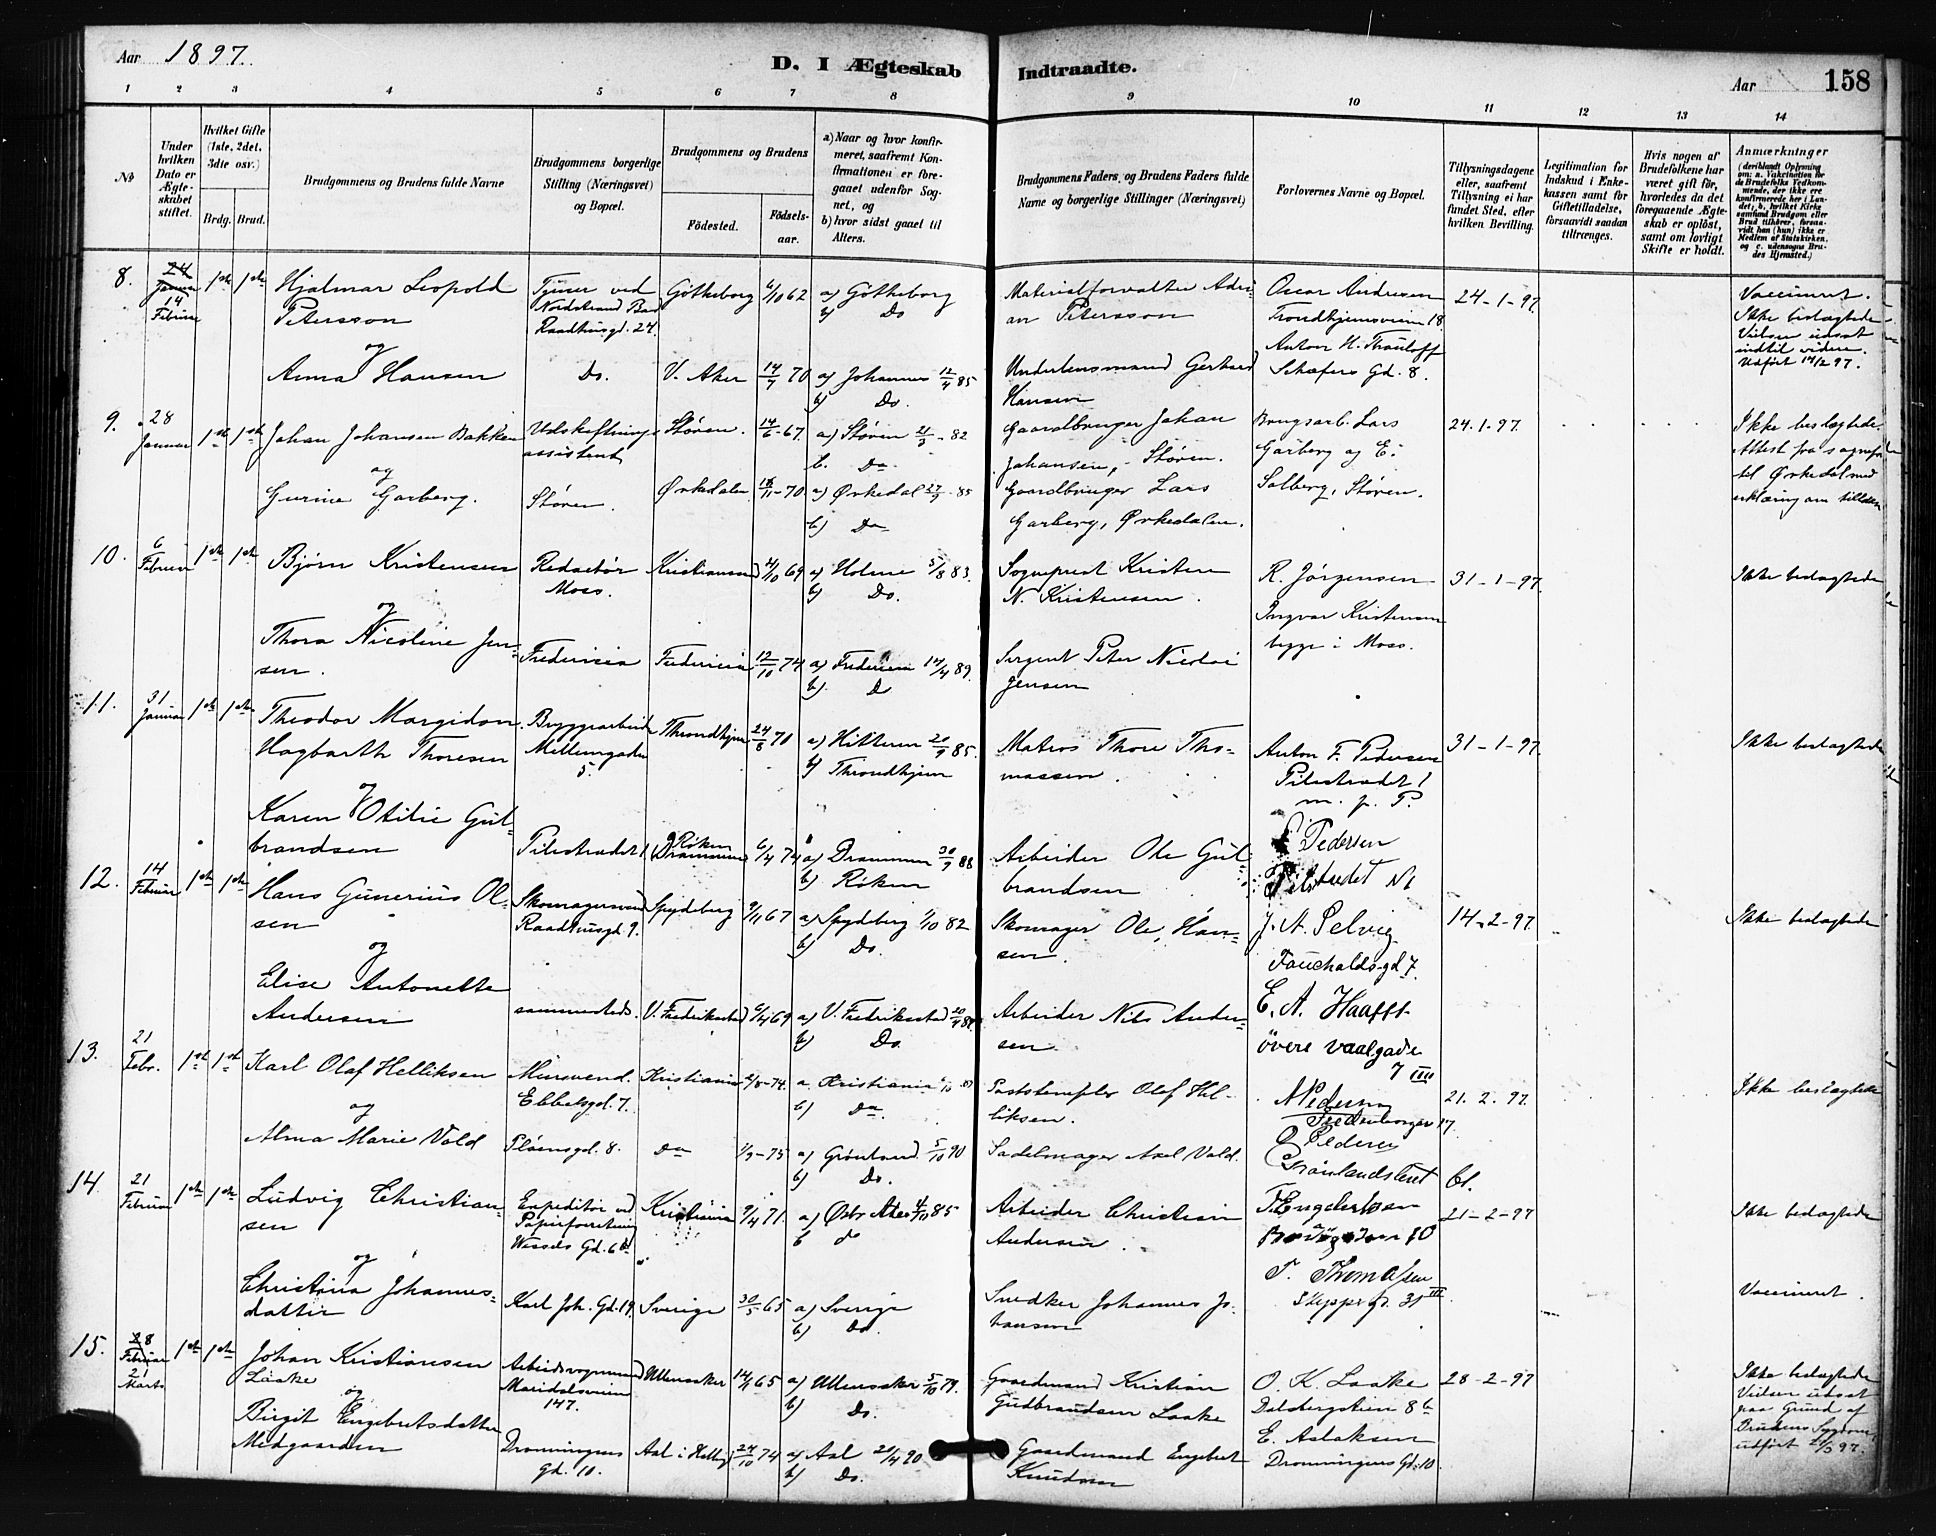 Aar 1897.
D. I Ægteskab Indtraadte.
Aar 158
1 2 3 4 5 6 7 8 9 10 11 12 13 14
No
Under hvilken Dato er Ægteskabet stiftet.
Hvilket Gifte (1ste, 2det, 3die osv.)
Brdg. Brud.
Brudgommens og Brudens fulde Navne
Brudgommens borgerlige Stilling (Næringsvei) og Bopæl.
Brudgommens og Brudens
Fødested. Fødselsaar.
a) Naar og hvor konfirmeret, saafremt Konfirmationen er foregaaet udenfor Sognet, og
b) hvor sidst gaaet til Alters.
Brudgommens Faders, og Brudens Faders fulde Navne og borgerlige Stillinger (Næringsvei)
Forlovernes Navne og Bopæl.
Tillysningsdagene eller, saafremt Tillysning ei har fundet Sted, efter hvilken Bevilling.
Legitimation for Indskud i Enkekassen samt for Giftetilladelse, forsaavidt saadan tiltrænges.
Hvis nogen af Brudefolkene har været gift før, hvorledes da det foregaaende Ægteskab er opløst, samt om lovligt Skifte er holdt.
Anmærkninger
8. 24 Januar 14 Februar 1ste 1ste
Hjalmar Leopold Petersson
Tjener ved Nordstrand Bad Raadhusgd. 24.
Gøtheborg 6/10 62
a) Gøtheborg
b) Do
Materialforvalter Adrian Petersson
Oscar Andresen Trondhjemsveien 18
24-1-97.
Vaccineret. Ikke beslægtede Vielsen udsat indtil videre. Udført 14/2 97.
og
Anna Hansen
Do. V. Aker 14/7 70
a) Johannes 12/4 85
b) Do.
Underlensmand Gerhard Hansen
Anton H. Thauloff Schæfers Gd. 8.
9. 28 Januar 1ste 1ste
Johan Johansen Bakken
Udskiftningsassistent
Støren. 14/6-67.
a) Støren 21/3-82
b. Do
Gaardbruger Johan Johansen, Støren.
Brugsarb. Lars Garberg og E. Solberg, Støren.
24.1.97.
Ikke beslægtede. Attest fra sognepr. til Ørkedal med erklæring om
og
Gurine Garberg.
Støren. Ørkedalen 18/11-70
a) Ørkedal 27/9-85
b) Do
Gaardbruger Lars Garberg, Ørkedalen.
10. 6 Februar 1ste 1ste
Bjørn Kristensen
Redactør Moss.
Kristiansand 21/10 69
a) Holme 5/8 83.
b) Do.
Sogneprest Kristen N. Kristensen.
R. Jørgensen
Ingvar Kristensen begge i Moss.
31-1-97.
Ikke beslægtede
og
Thora Nicoline Jensen.
Fredericia Fredericia 12/10 74
a) Fredericia 14/4 89.
b) Do
Sergent Peter Nicolai Jensen
11. 31 Januar 1ste 1ste
Theodor Margido n Hagbarth Thoresen
Bryggearbeider Mellemgaden 5.
Throndhjem 24/8 70
a) Hitteren 20/9 85.
b) Throndhjem
Matros Thore Thomassen.
Anton F. Pedersen Pilestrædet 1 m. p. P.
31-1-97.
Ikke beslægtede
og
Karen Otilie Gulbrandsen
Pilestrædet 1 Røken (Drammen) 6/4 74
a) Drammen 30/9 88
b) Røken
Arbeider Ole Gulbrandsen
Pedersen Pilestrædet N 1
12. 14 Februar 1ste 1ste
Hans Gunerius Olsen
Skomagersvend Raadhusgd. 9.
Spydeberg 9/11 67
a) Spydeberg 1/10 82
b) Do.
Skomager Ole Hansen.
J. A. Selvig Faucholdsgd 7.
14-2-97.
Ikke beslægtede
og
Elise Antonette Andersen
sammesteds. V. Fredrikstad 6/4 69
a) V. Fredrikstad
b) Do.
Arbeider Nils Andersen.
E. A. Haafft øvere Vaalgade 7 IIII
13. 21 Febr. 1ste 1ste
Karl Olaf Helliksen
Murersvend. Ebbelsgd. 7.
Kristiania 2/8-74.
a. Kristiania
b) Do.
Poststempler Olaf Helliksen.
Fredensborgvn 17.
21.2.97.
Ikke beslægtede
og
Alma Marie Vold
Pløensgd. 8. Do 1/3-75
a) Grønland 5/10 90
b) Do.
Sadelmager Axel Vold.
Pedersen Grønlandsleret 61.
14. 21 Februar 1ste 1ste
Ludvig Christiansen
Expeditør ved Papirforretning Wessels Gd. 6 b
Kristiania 9/4 71.
a) Østr Aker 4/10 85
b do
Arbeider Christian Andersen.
Engebretsen
21-2-97
Ikke beslægtede
og
Christina Johannesdatter
Karl Joh. Gd. 19. Sverige 30/5 65
a) Sverige
b) Do.
Snedker Johannes Johansen
T. Thomassen Skippergd. 31 III
Vaccineret.
15. 28 Februar 21 Marts 1ste 1ste
Johan Kristiansen Laake
Arbeidsvognmand Maridalsveien 147.
Ullensaker 14/11 65
a) Ullensaker 5/10 79.
b) Do.
Gaardmand Kristian Gudbrandsen Laake
O. K. Laake Dalsbergstien 8 b
28-2-97
Ikke beslægtede Vielsen udsat paa Grund af Brudens Sygdom, udført 21/3 97.
og
Birgit Engebretsdatter Medgaarden
Dronningens Gd. 10.
Aal i Hallingd 24/10 74
a) Aal 20/4 90
b) Do.
Gaardmand Engebret Knudsen
E. Aslaksen Dronningens Gd. 10.